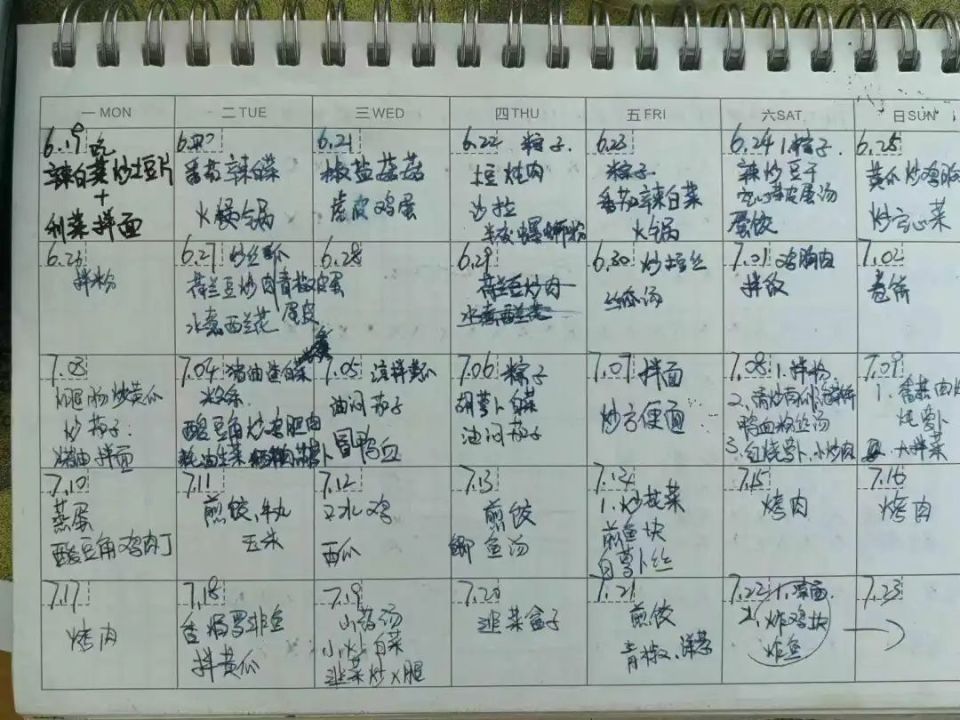 一 MON
二 TUE
三 WED
四 THU
五 FRI
六 SAT.
日 SUN
6.19 吃
辣白菜炒土豆片
+
利菜拌面
番茄辣白菜
火锅
6.21
椒盐蘑菇
虎皮鸡蛋
6.22 粽子.
土豆炖肉
沙拉
螺蛳粉
6.23
粽子
番茄辣白菜
火锅
6.24 1.粽子.
辣炒豆干
空心菜皮蛋汤
蛋饺
6.25
黄瓜炒鸡
炒空心菜
6.26
拌粉
6.27 炒丝瓜
荷兰豆炒肉 青椒皮蛋
水煮西兰花
6.28
6.29
荷兰豆炒肉
水煮西兰花
6.30 炒土豆丝
丝瓜汤
7.01 鸡胸肉
拌饭
7.02
卷饼
7.03
火腿肠炒黄瓜
炒茄子.
拌面
7.04 猪油渣白菜
酸豆角炒鸡肥肉
耗油生菜
7.05 凉拌黄瓜
油闷茄子
冒鸭血
7.06 粽子
胡萝卜白菜
油闷茄子
7.07 拌面
炒方便面
7.08 1.拌粉
2、清炒南瓜
鸭血粉丝汤
3、红烧萝卜、小炒肉
7.09
1.
炖萝卜
大拌菜
7.10
蒸蛋
酸豆角鸡肉丁
7.11
煎饺、牛丸
玉米
7.12
口水鸡
西瓜
7.13
煎饺
鲫鱼汤
7.14
1.炒花菜
煎鱼块
白萝卜丝
7.15
烤肉
7.16
烤肉
7.17
烤肉
7.18
香焗罗非鱼
拌黄瓜
7.19
山药汤
小炒白菜
韭菜炒火腿
7.20
韭菜盒子
7.21
煎饺
青椒、洋葱
7.22 1.凉面.
2、炸鸡块
炸鱼
7.23